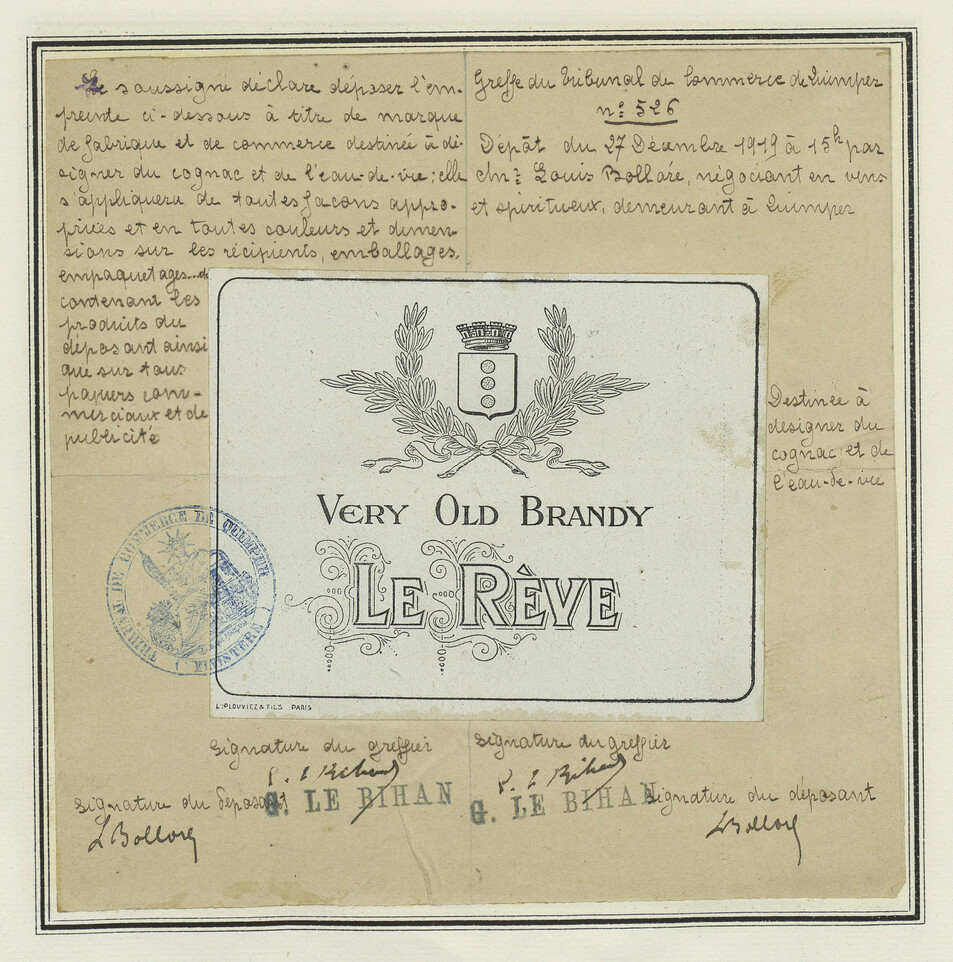 Le soussigné déclare déposer l'em-
preinte ci-dessous à titre de marque
de fabrique et de commerce destinée à dé-
signer du cognac et de l'eau-de-vie; elle
s'appliquera de toutes façons appro-
priées et en toutes couleurs et dimen-
sions sur les récipients, emballages,
empaquetages...
contenant les
produits du
déposant ainsi
que sur tous
papiers com-
merciaux et de
publicité
Greffe du Tribunal de Commerce de Quimper
n° 526
Dépôt du 27 Décembre 1919 à 15h par
Louis Bolloré, négociant en vins
et spiritueux, demeurant à Quimper
Destinée à
designer du
cognac et de
l'eau-de-vie
VERY OLD BRANDY
LE RÊVE
L. PLOUVIEZ & FILS PARIS
TRIBUNAL DE COMMERCE DE QUIMPER
(FINISTÈRE)
Signature du greffier
G. LE BIHAN
Signature du déposant
L Bolloré
Signature du greffier
G. LE BIHAN
Signature du déposant
L Bolloré